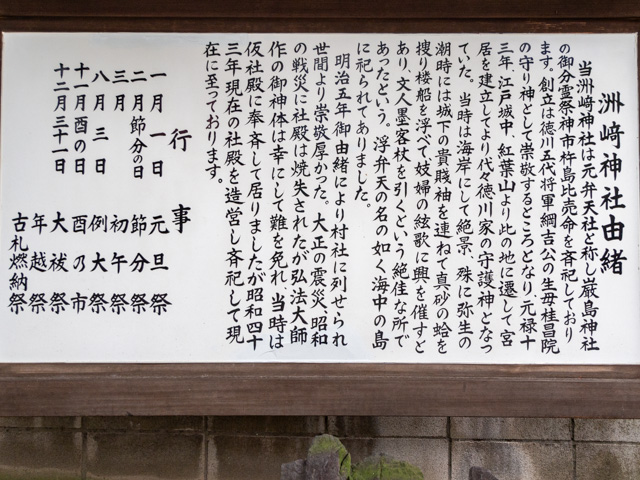 洲﨑神社由緒
当洲﨑神社は元弁天社と称し厳島神社
の御分霊祭神市杵島比売命を斉祀しており
ます。創立は徳川五代将軍綱吉公の生母桂昌院
の守り神として崇敬するところとなり元禄十
三年、江戸城中、紅葉山より此の地に遷して宮
居を建立してより代々徳川家の守護神となっ
ていた。当時は海岸にして絶景、殊に弥生の
潮時には城下の貴賤袖を連ねて真砂の蛤を
捜り楼船を浮べて妓婦の絃歌に興を催すと
あり、文人墨客杖を引くという絶佳な所で
あったという。浮弁天の名の如く海中の島
に祀られてありました。
明治五年御由緒により村社に列せられ
世間より崇敬厚かった。大正の震災、昭和
の戦災に社殿は焼失されたが弘法大師
作の御神体は幸にして難を免れ、当時は
仮社殿に奉斉して居りましたが昭和四十
三年現在の社殿を造営し斉祀して現
在に至っております。
行事
一月一日 元旦祭
二月節分の日 節分祭
三月 初午祭
八月三日 例大祭
十一月酉の日 酉乃市
十二月三十一日 大祓祭
年越祭
古札燃納祭